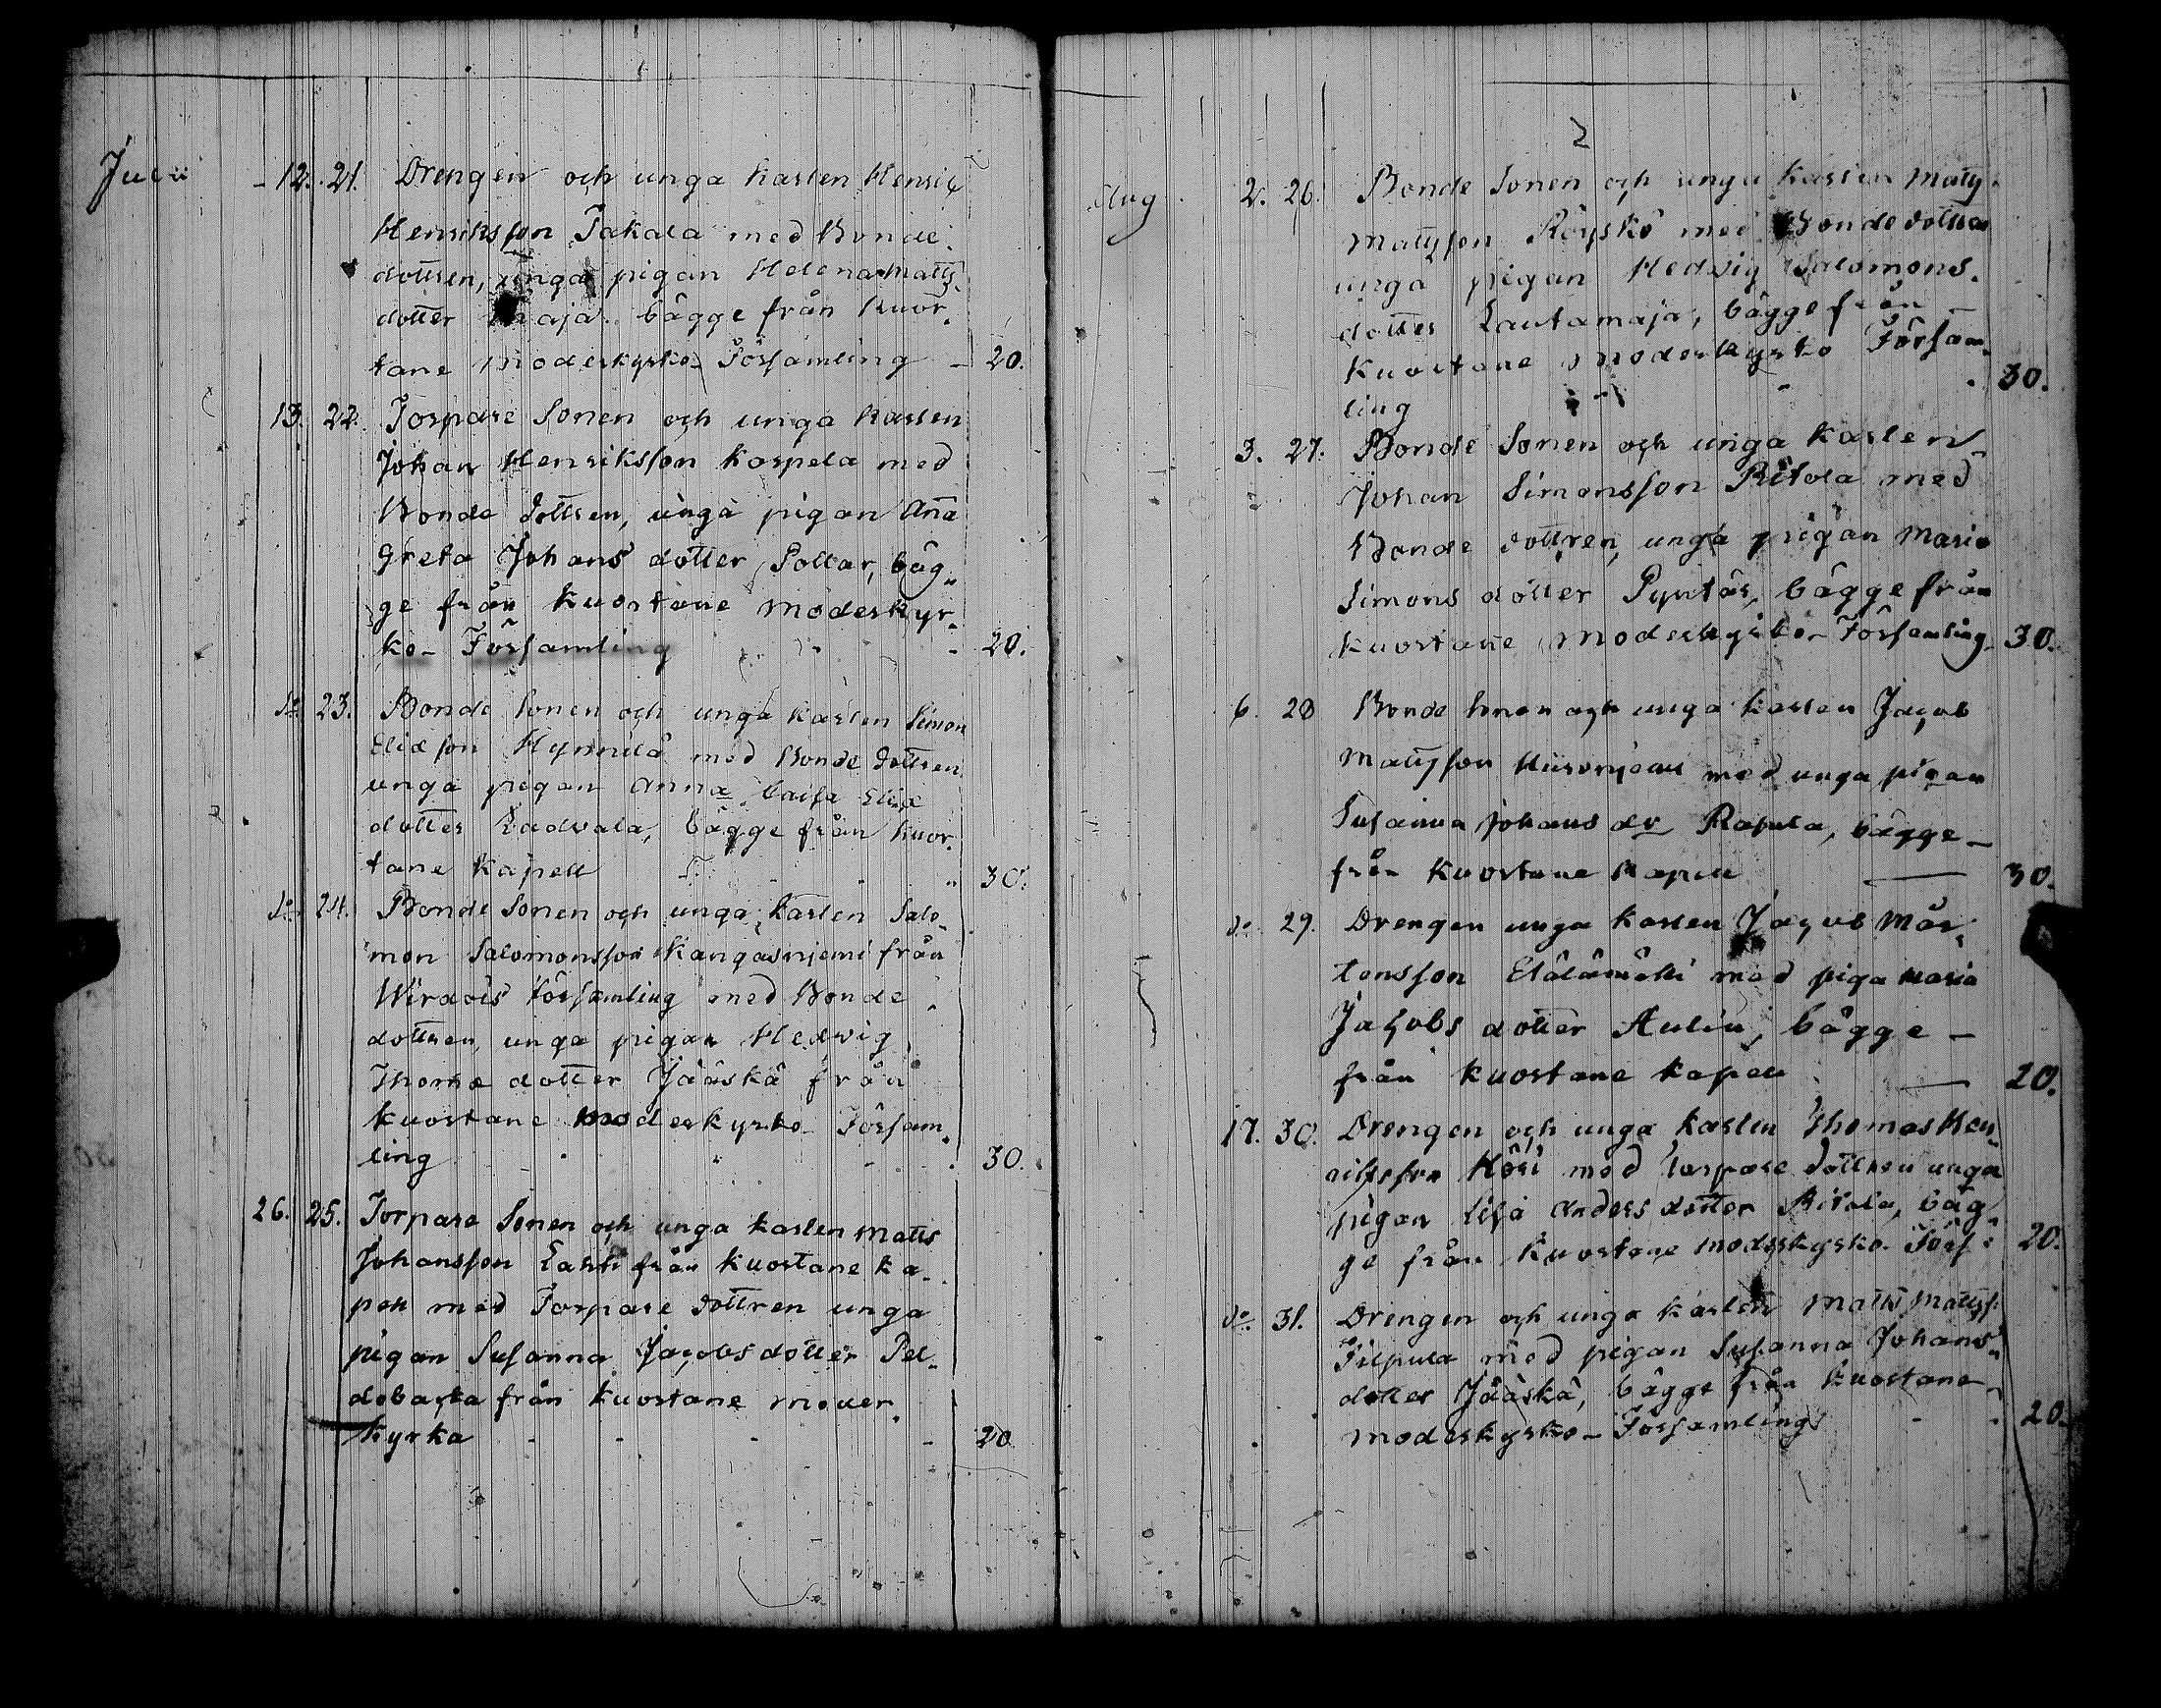 Julii - 12. 21. Drengen och unga karlen Henrik
Henriksson Takala med Bonde
dottren, unga pigan Helena Matts
dotter Maja bägge från Kuor,
tane moderkyrko- Församling - 20.
13. 22. Torpare Sonen och unga karlen
Johan Henriksson Korpela med
Bonde dottren, unga pigan Aña
Greta Johans dotter Sollar, bäg„
ge från Kuortane moderkyr„
ko- Församling - 20.
do 23. Bonde Sonen och unga karlen Simon
Eliæ son Hynnilä med Bonde dottren
unga pigan Anna Caisa Eliæ
dotter Ladvala, bägge från Kuor,
tane Kapell „ 30.
do 24. Bonde Sonen och unga karlen Salo„
mon Salomonsson Kangasnjemi från
Wirdois Församling med Bonde
dottren, unga pigan Hedvig
Thomæ dotter Jääskä från
Kuortane moderkyrko- Försam„
ling - 30.
26. 25. Torpare Sonen och unga karlen Matts
Johansson Lahti från Kuortane ka„
pell med Torpare dottren unga
pigan Susanna Jacobs dotter Pel„
dobacka från Kuortane moder„
kyrka - - - - 20
2
Aug. 2. 26. Bonde Sonen och unga karlen Matts
Mattsson Röyskö med Bonde dottren
unga pigan Hedvig Salomons„
dotter Lautamaja, bägge från
Kuortane moderkyrko Försam„
ling - 30.
3. 27. Bonde Sonen och unga karlen
Johan Simonsson Ritola med
Bonde dottren, unga pigan Maria
Simons dotter Pyntär, bägge från
Kuortane moderkyrko- Församling 30.
6. 28 Bonde Sonen och unga karlen Jacob
Mattsson med unga pigan
Susanna Johans dr Rapula, bägge -
från Kuortane Kapell - 30.
do 29. Drengen unga karlen Jacob Mår„
tensson Elälämäki med piga Maria
Jacobs dotter Aulin, bägge -
från Kuortane Kapell - 20.
17. 30. Drengen och unga karlen Thomas Hen„
riksson Kåsi med Torpare dottren unga
pigan Lisa Anders dotter Ritola, bäg„
ge från Kuortane moderkyrko- Förs: 20.
do 31. Drengen och unga karlen Matts Mattss:
Filpula med pigan Susanna Johans„
dotter Jääskä, bägge från Kuortane
moderkyrko- Församling - - 20.